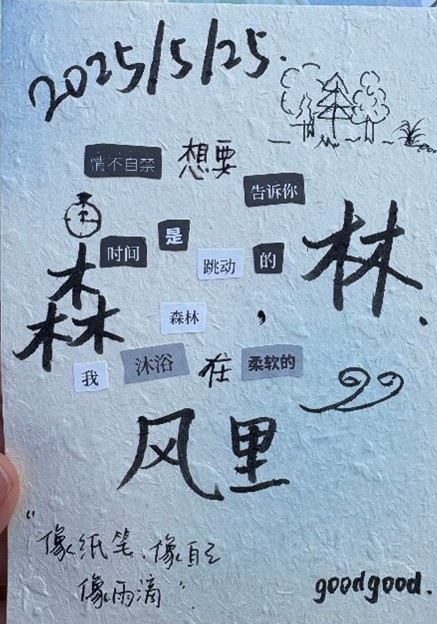 2025/5/25.
情不自禁 想要
告诉你
时间 是
跳动 的
森林
森林 ,
我 沐浴 在 柔软的
风里
“像纸笔、像自己
像雨滴”
goodgood.